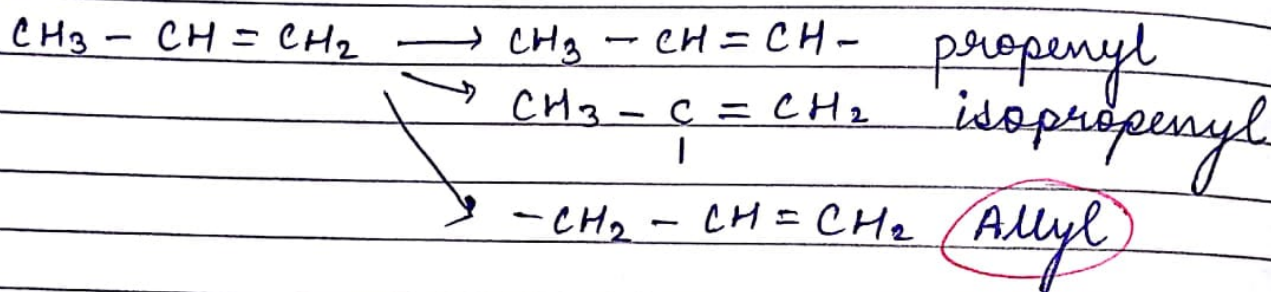 CH3 - CH = CH2 → CH3 - CH = CH - propenyl
CH3 - C = CH2 isopropenyl
- CH2 - CH = CH2 Allyl